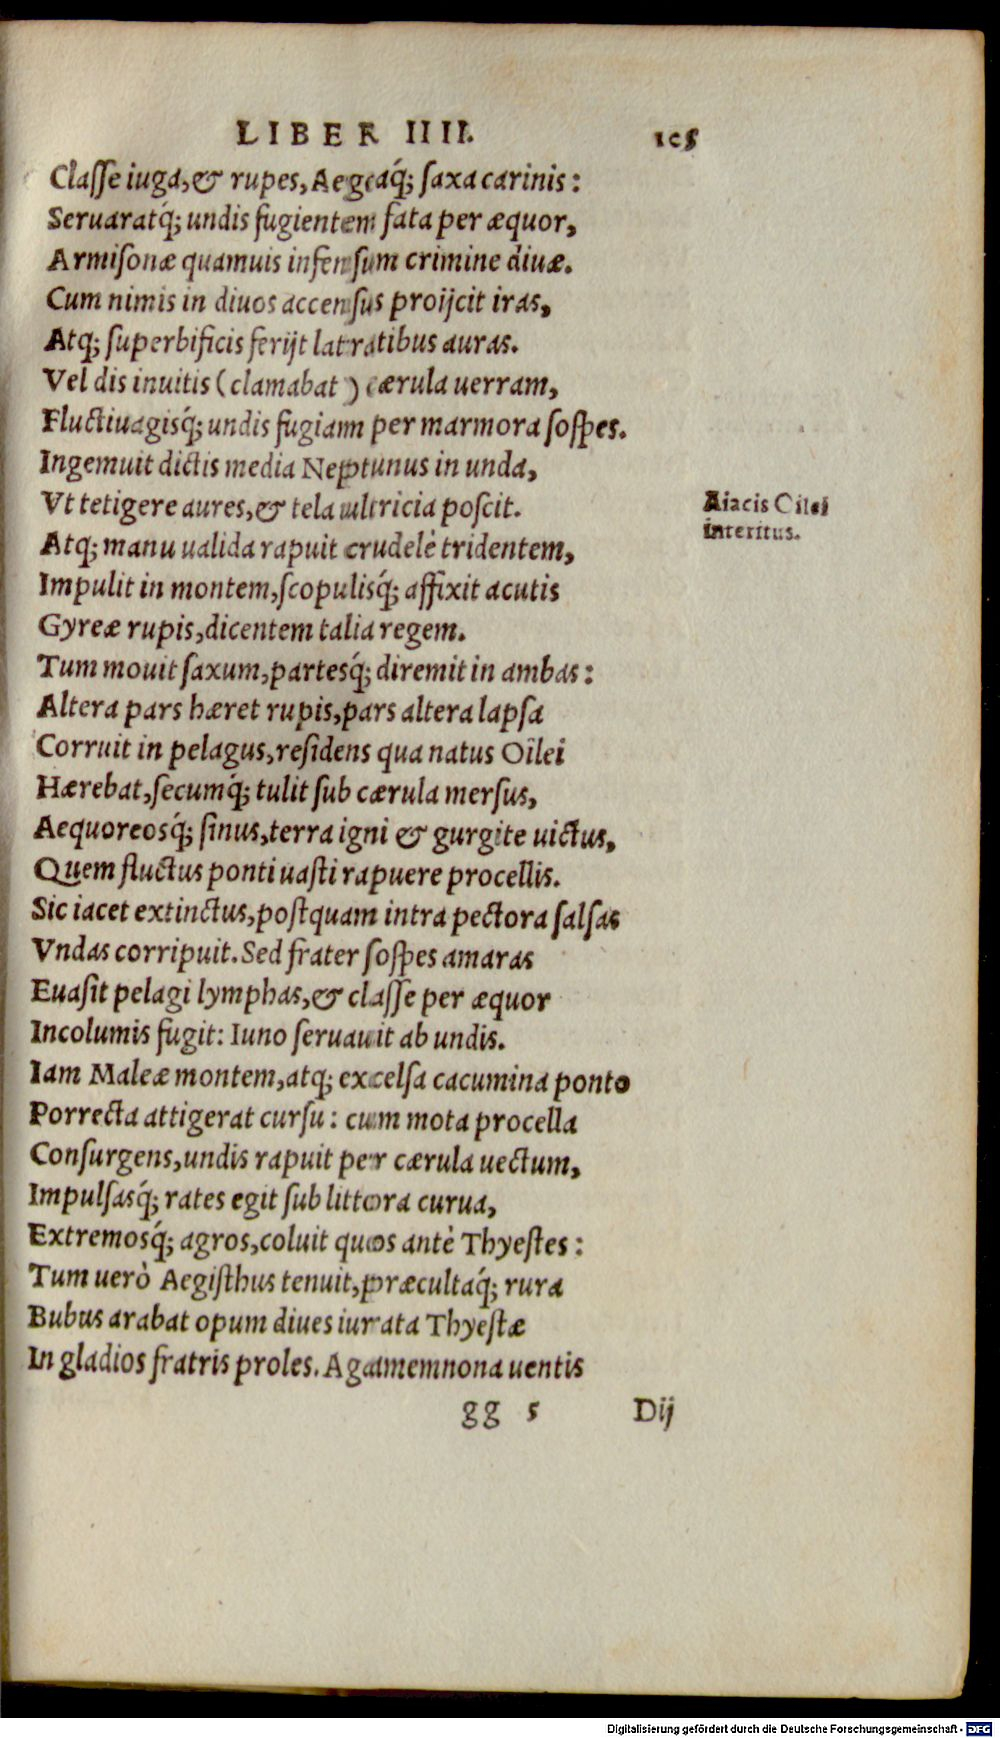 LIBER IIII. 105
Classe iuga, & rupes, Aegeaq́; saxa carinis:
Seruaratq́; undis fugientem fata per æquor,
Armisonæ quamuis infensum crimine diuæ.
Cum nimis in diuos accensus proijcit iras,
Atq; superbificis ferijt latratibus auras.
Vel dis inuitis (clamabat) cærula uerram,
Fluctiuagisq́; undis fugiam per marmora sospes.
Ingemuit dictis media Neptunus in unda,
Vt tetigere aures, & tela ultricia poscit.
Aiacis Oilei
interitus.
Atq; manu ualida rapuit crudelè tridentem,
Impulit in montem, scopulisq́; affixit acutis
Gyreæ rupis, dicentem talia regem.
Tum mouit saxum, partesq́; diremit in ambas:
Altera pars hæret rupis, pars altera lapsa
Corruit in pelagus, residens qua natus Oïlei
Hærebat, secumq́; tulit sub cærula mersus,
Aequoreosq́; sinus, terra igni & gurgite uictus,
Quem fluctus ponti uasti rapuere procellis.
Sic iacet extinctus, postquam intra pectora salsas
Vndas corripuit. Sed frater sospes amaras
Euasit pelagi lymphas, & classe per æquor
Incolumis fugit: Iuno seruauit ab undis.
Iam Maleæ montem, atq; excelsa cacumina ponto
Porrecta attigerat cursu: cum mota procella
Consurgens, undis rapuit per cærula uectum,
Impulsasq́; rates egit sub littora curua,
Extremosq́; agros, coluit quos antè Thyestes:
Tum uerò Aegisthus tenuit, præcultaq́; rura
Bubus arabat opum diues iurata Thyestæ
In gladios fratris proles. Agamemnona uentis
gg 5 Dij
Digitalisierung gefördert durch die Deutsche Forschungsgemeinschaft - DFG